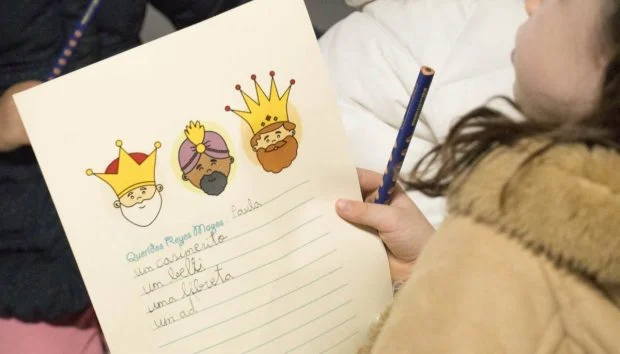 Queridos Reyes Magos Paula
un casimerito
un belli
una libreta
un ad